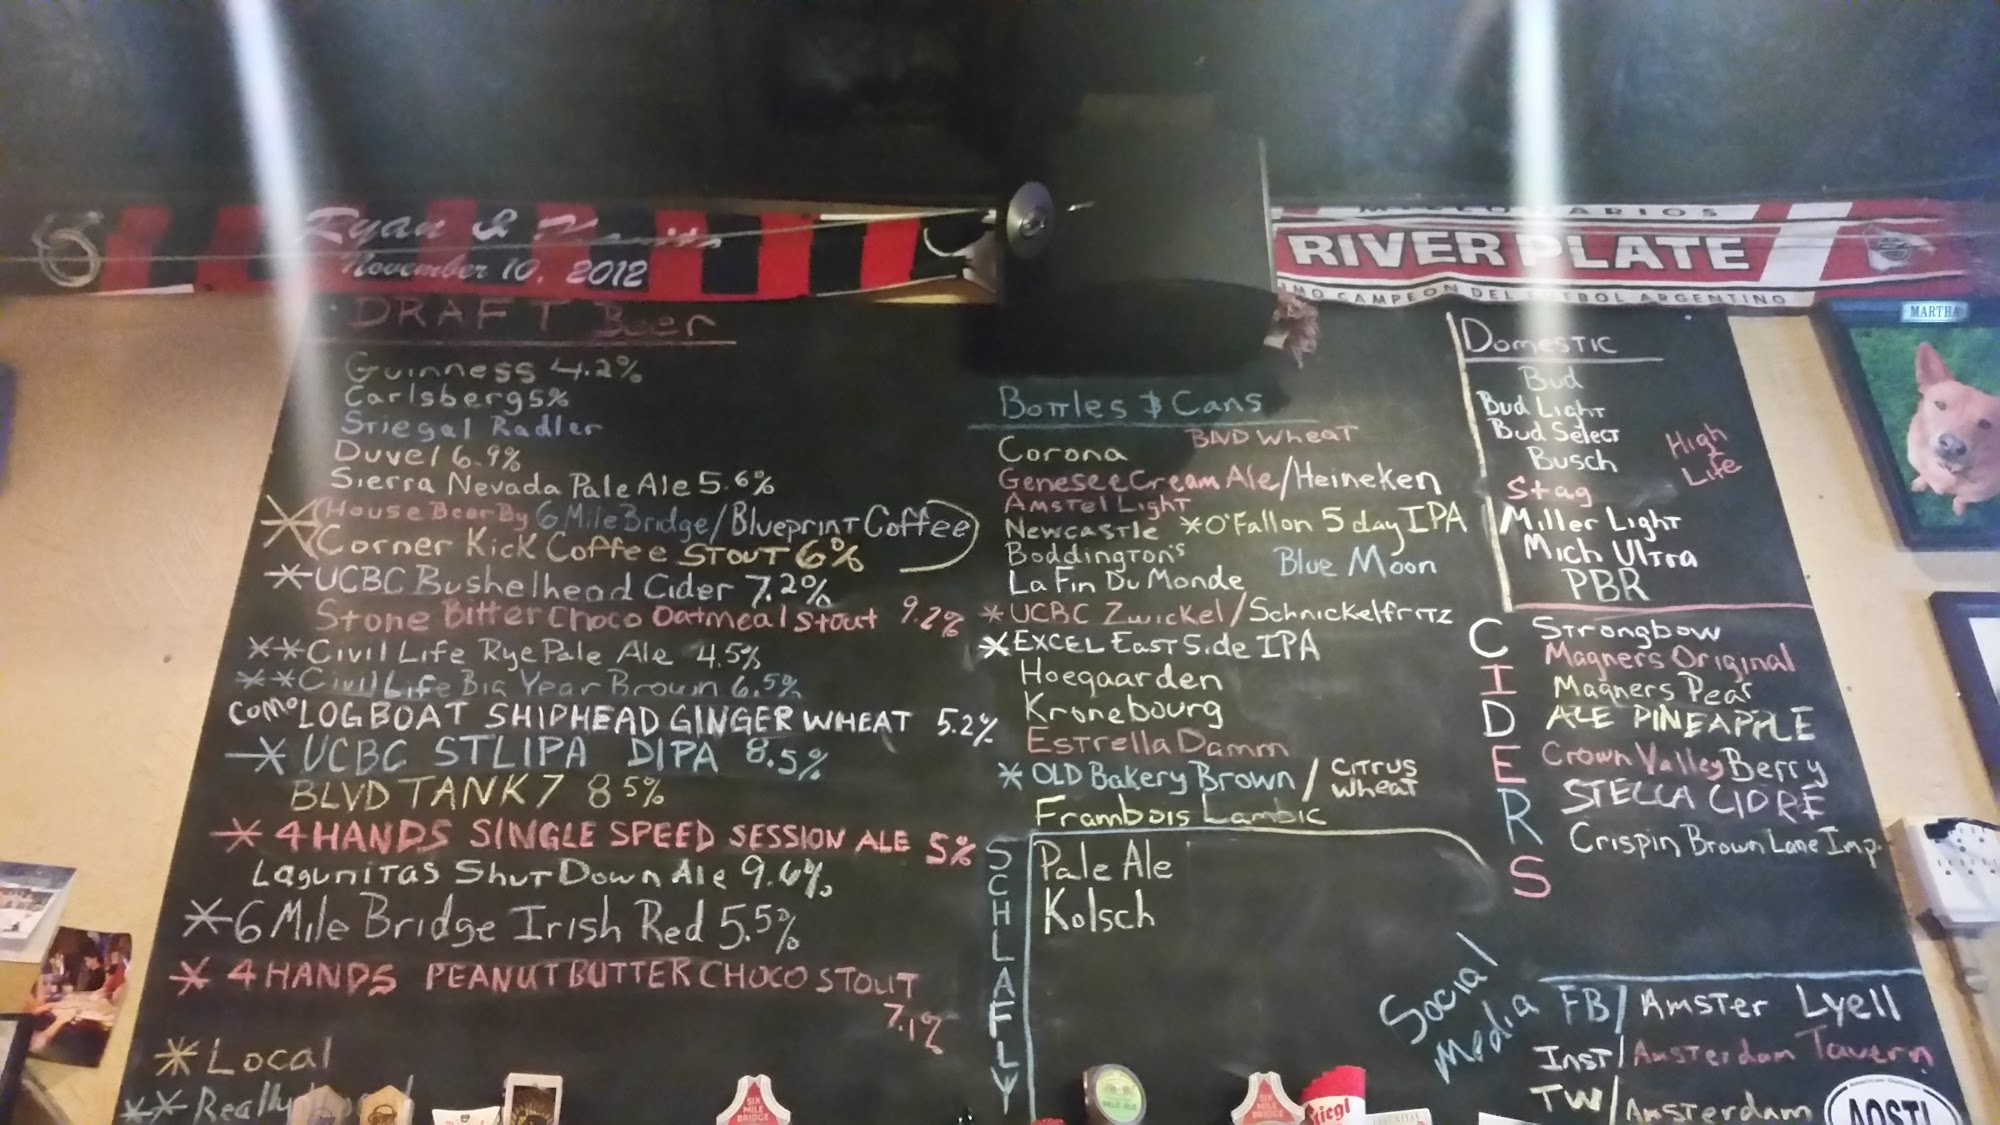 Ryan &
November 10, 2012
RIVER PLATE
CAMPEON DEL FUTBOL ARGENTINO
MARTHA
DRAFT Beer
Guinness 4.2%
Carlsberg 5%
Stiegal Radler
Duvel 6.9%
Sierra Nevada Pale Ale 5.6%
* (House Beer By 6 Mile Bridge/Blueprint Coffee)
Corner Kick Coffee STOUT 6%
* UCBC Bushelhead Cider 7.2%
Stone Bitter Choco Oatmeal Stout 9.2%
** Civil Life Rye Pale Ale 4.5%
** Civil Life Big Year Brown 6.5%
COMO LOGBOAT SHIPHEAD GINGER WHEAT 5.2%
* UCBC STLIPA DIPA 8.5%
BLVD TANK 7 8.5%
* 4 HANDS SINGLE SPEED SESSION ALE 5%
Lagunitas Shut Down Ale 9.6%
* 6 Mile Bridge Irish Red 5.5%
* 4 HANDS PEANUT BUTTER CHOCO STOUT
7.1%
* Local
** Really
Bottles & Cans
BLVD Wheat
Corona
Genesee Cream Ale/Heineken
Amstel Light
Newcastle *O'Fallon 5 day IPA
Boddington's
Blue Moon
La Fin Du Monde
* UCBC Zwickel/Schnickelfritz
* EXCEL East Side IPA
Hoegaarden
Kronebourg
Estrella Damm
* OLD Bakery Brown / Citrus Wheat
Frambois Lambic
SCHLAFLY
Pale Ale
Kolsch
Domestic
Bud
Bud Light
Bud Select
Busch
High Life
Stag
Miller Light
Mich Ultra
PBR
CIDERS
Strongbow
Magners Original
Magners Pear
ALE PINEAPPLE
Crown Valley Berry
STELLA CIDRE
Crispin Brown Lane Imp.
Social Media
FB/Amster Lyell
Inst/Amsterdam Tavern
TW/Amsterdam
SIX MILE BRIDGE
SIX MILE BRIDGE
AOSTL